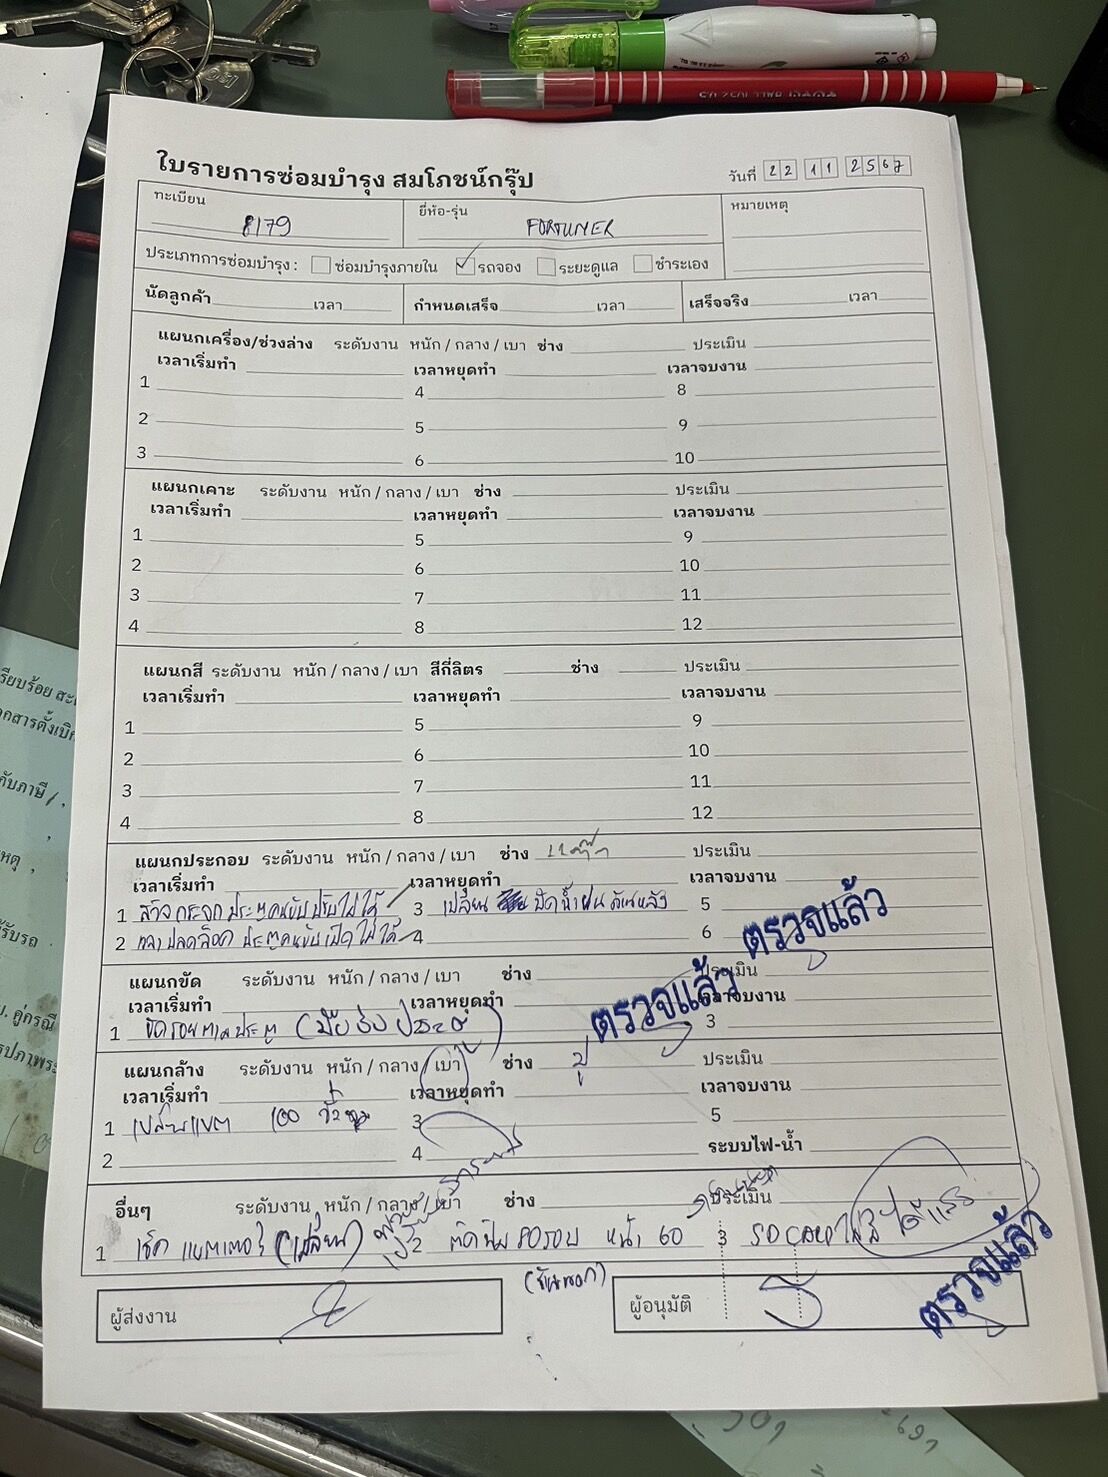 ใบรายการซ่อมบำรุง สมโภชน์กรุ๊ป
วันที่ 22 11 2567
ทะเบียน 8179
ยี่ห้อ-รุ่น FORTUNER
หมายเหตุ
ประเภทการซ่อมบำรุง : ซ่อมบำรุงภายใน รถจอง ระยะดูแล ชำระเอง
นัดลูกค้า เวลา กำหนดเสร็จ เวลา เสร็จจริง เวลา
แผนกเครื่อง/ช่วงล่าง ระดับงาน หนัก / กลาง / เบา ช่าง ประเมิน
เวลาเริ่มทำ เวลาหยุดทำ เวลาจบงาน
1 4 8
2 5 9
3 6 10
แผนกเคาะ ระดับงาน หนัก / กลาง / เบา ช่าง ประเมิน
เวลาเริ่มทำ เวลาหยุดทำ เวลาจบงาน
1 5 9
2 6 10
3 7 11
4 8 12
แผนกสี ระดับงาน หนัก / กลาง / เบา สีกี่ลิตร ช่าง ประเมิน
เวลาเริ่มทำ เวลาหยุดทำ เวลาจบงาน
1 5 9
2 6 10
3 7 11
4 8 12
แผนกประกอบ ระดับงาน หนัก / กลาง / เบา ช่าง ประเมิน
เวลาเริ่มทำ เวลาหยุดทำ เวลาจบงาน
1 กระจกประตูคนขับปรับไม่ได้ 3 เปลี่ยน ปัดน้ำฝน ด้านหลัง 5
2 ปลดล็อค ประตูคนขับเปิดไม่ได้ 4 6
ตรวจแล้ว
แผนกขัด ระดับงาน หนัก / กลาง / เบา ช่าง ประเมิน
เวลาเริ่มทำ เวลาหยุดทำ เวลาจบงาน
ตรวจแล้ว
1 ขัดรอย ประตู 3
แผนกล้าง ระดับงาน หนัก / กลาง / เบา ช่าง ปู ประเมิน
เวลาเริ่มทำ เวลาหยุดทำ เวลาจบงาน
1 แบต 100 3 5
2 4 ระบบไฟ-น้ำ
อื่นๆ ระดับงาน หนัก / กลาง / เบา ช่าง ประเมิน
1 เช็ค แบตเตอรี่ (เปลี่ยน) 2 ติดฟิล์มรอบ หน้า 60 3 SD CARD ไม่มี
ผู้ส่งงาน
ผู้อนุมัติ
ตรวจแล้ว